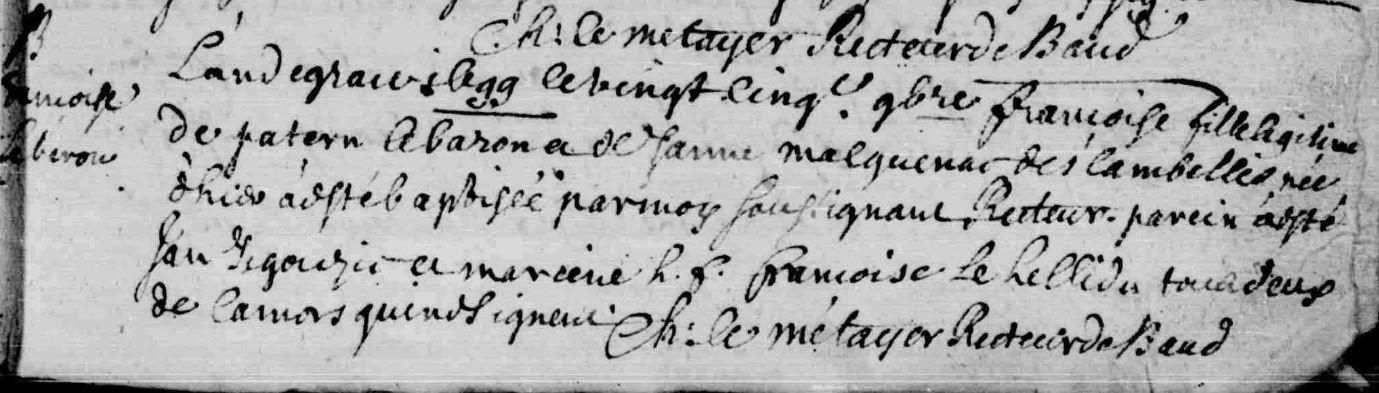 Ch: le metayer Recteur de Baud
L'an de grace 1699 le vingt cinq.e 9bre françoise fille legitime
françoise
de patern le baron et de Janne malquenac de s. cambellis née
le baron
d'hier à esté baptisée par moy soussignant Recteur. parein à esté
Jan et mareine h. f. francoise le hellidu tous deux
de camors qui ne signent Ch: le métayer Recteur de Baud